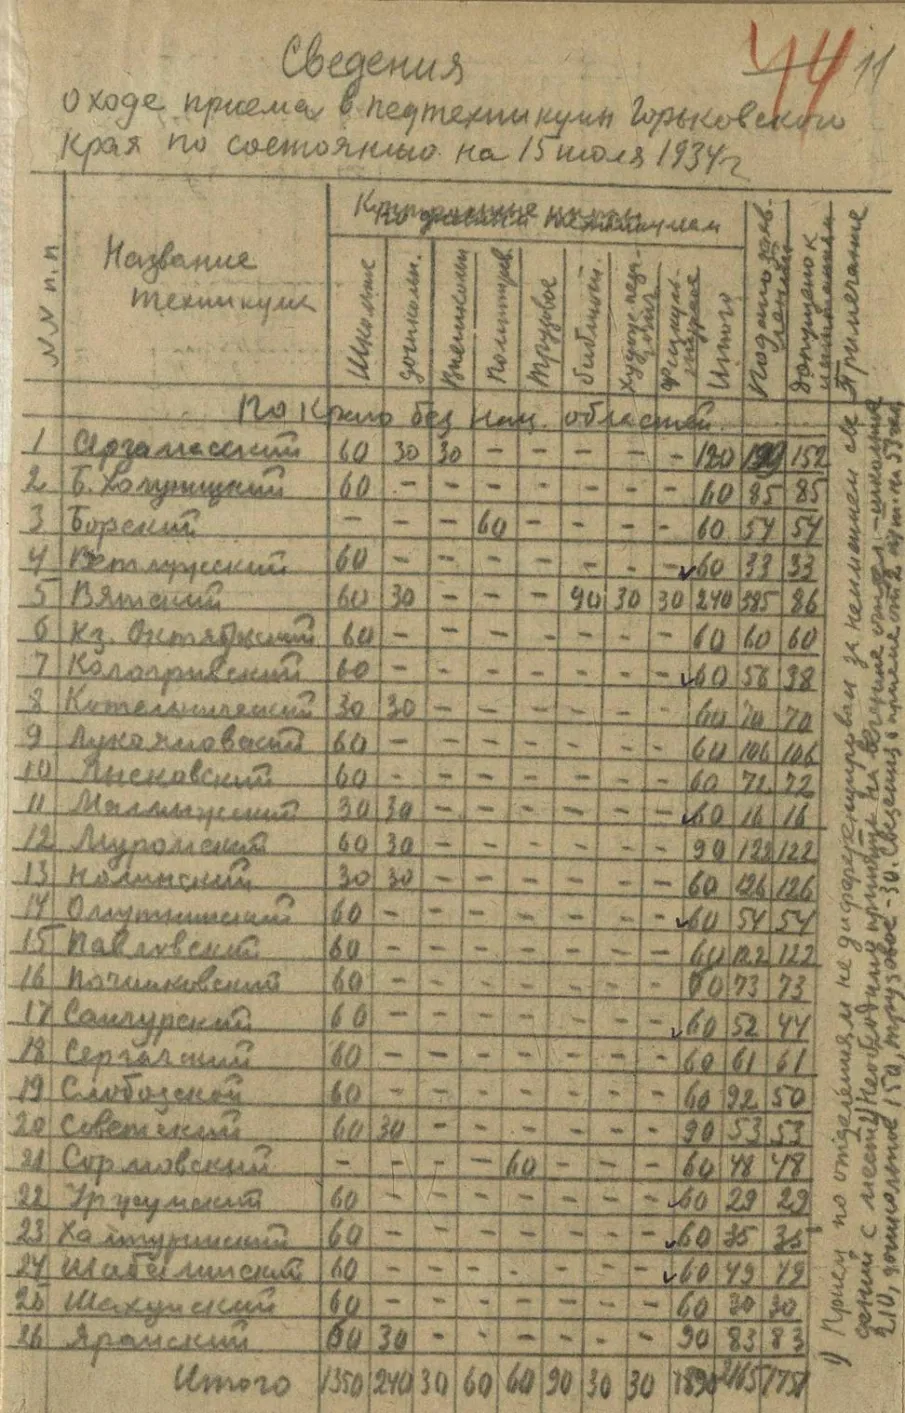 44 11
Сведения
о ходе приема в педтехникумы Горьковского
края по состоянию на 15 июля 1934 г
NN п.п
Название техникума
Контрольные цифры
по техникумам
Школьное
дошкольн.
внешкольн
политпр.
трудовое
библиот.
Физкуль-
турное
Итого
Подано заяв-
лений
Допущено к
испытаниям
Примечание
По Краю без нац. областей
1 Арзамасский 60 30 30 - - - - - 120 152
2 Б. Холуницкий 60 - - - - - - - 60 85 85
3 Борский - - - 60 - - - - 60 54 54
4 Ветлужский 60 - - - - - - - 60 33 33
5 Вятский 60 30 - - - 90 30 30 240 385 86
6 Кз. Октябрьский 60 - - - - - - - 60 60 60
7 Кологривский 60 - - - - - - - 60 56 38
8 Котельнический 30 30 - - - - - - 60 70 70
9 Лукояновский 60 - - - - - - - 60 106 106
10 Лысковский 60 - - - - - - - 60 72 72
11 Малмыжский 30 30 - - - - - - 60 16 16
12 Муромский 60 30 - - - - - - 90 122 122
13 Нолинский 30 30 - - - - - - 60 126 126
14 Омутнинский 60 - - - - - - - 60 54 54
15 Павловский 60 - - - - - - - 60 122 122
16 Починковский 60 - - - - - - - 60 73 73
17 Санчурский 60 - - - - - - - 60 52 44
18 Сергачский 60 - - - - - - - 60 61 61
19 Слободской 60 - - - - - - - 60 92 50
20 Советский 60 30 - - - - - - 90 53 53
21 Сормовский - - - - 60 - - - 60 48 48
22 Уржумский 60 - - - - - - - 60 29 29
23 Халтуринский 60 - - - - - - - 60 35 35
24 Шабалинский 60 - - - - - - - 60 49 49
25 Шахунский 60 - - - - - - - 60 30 30
26 Яранский 60 30 - - - - - - 90 83 83
Итого 1350 240 30 60 60 90 30 30 1890 2165 1751
1) Прием по отделениям не дифференцирован за неимением све-
дений с мест. 2) Необходимо принять на вечерние отдел. - школьные
210, дошкольное 150, трудовое - 30. Сведения о приеме от 2 пут. на 53 чел.